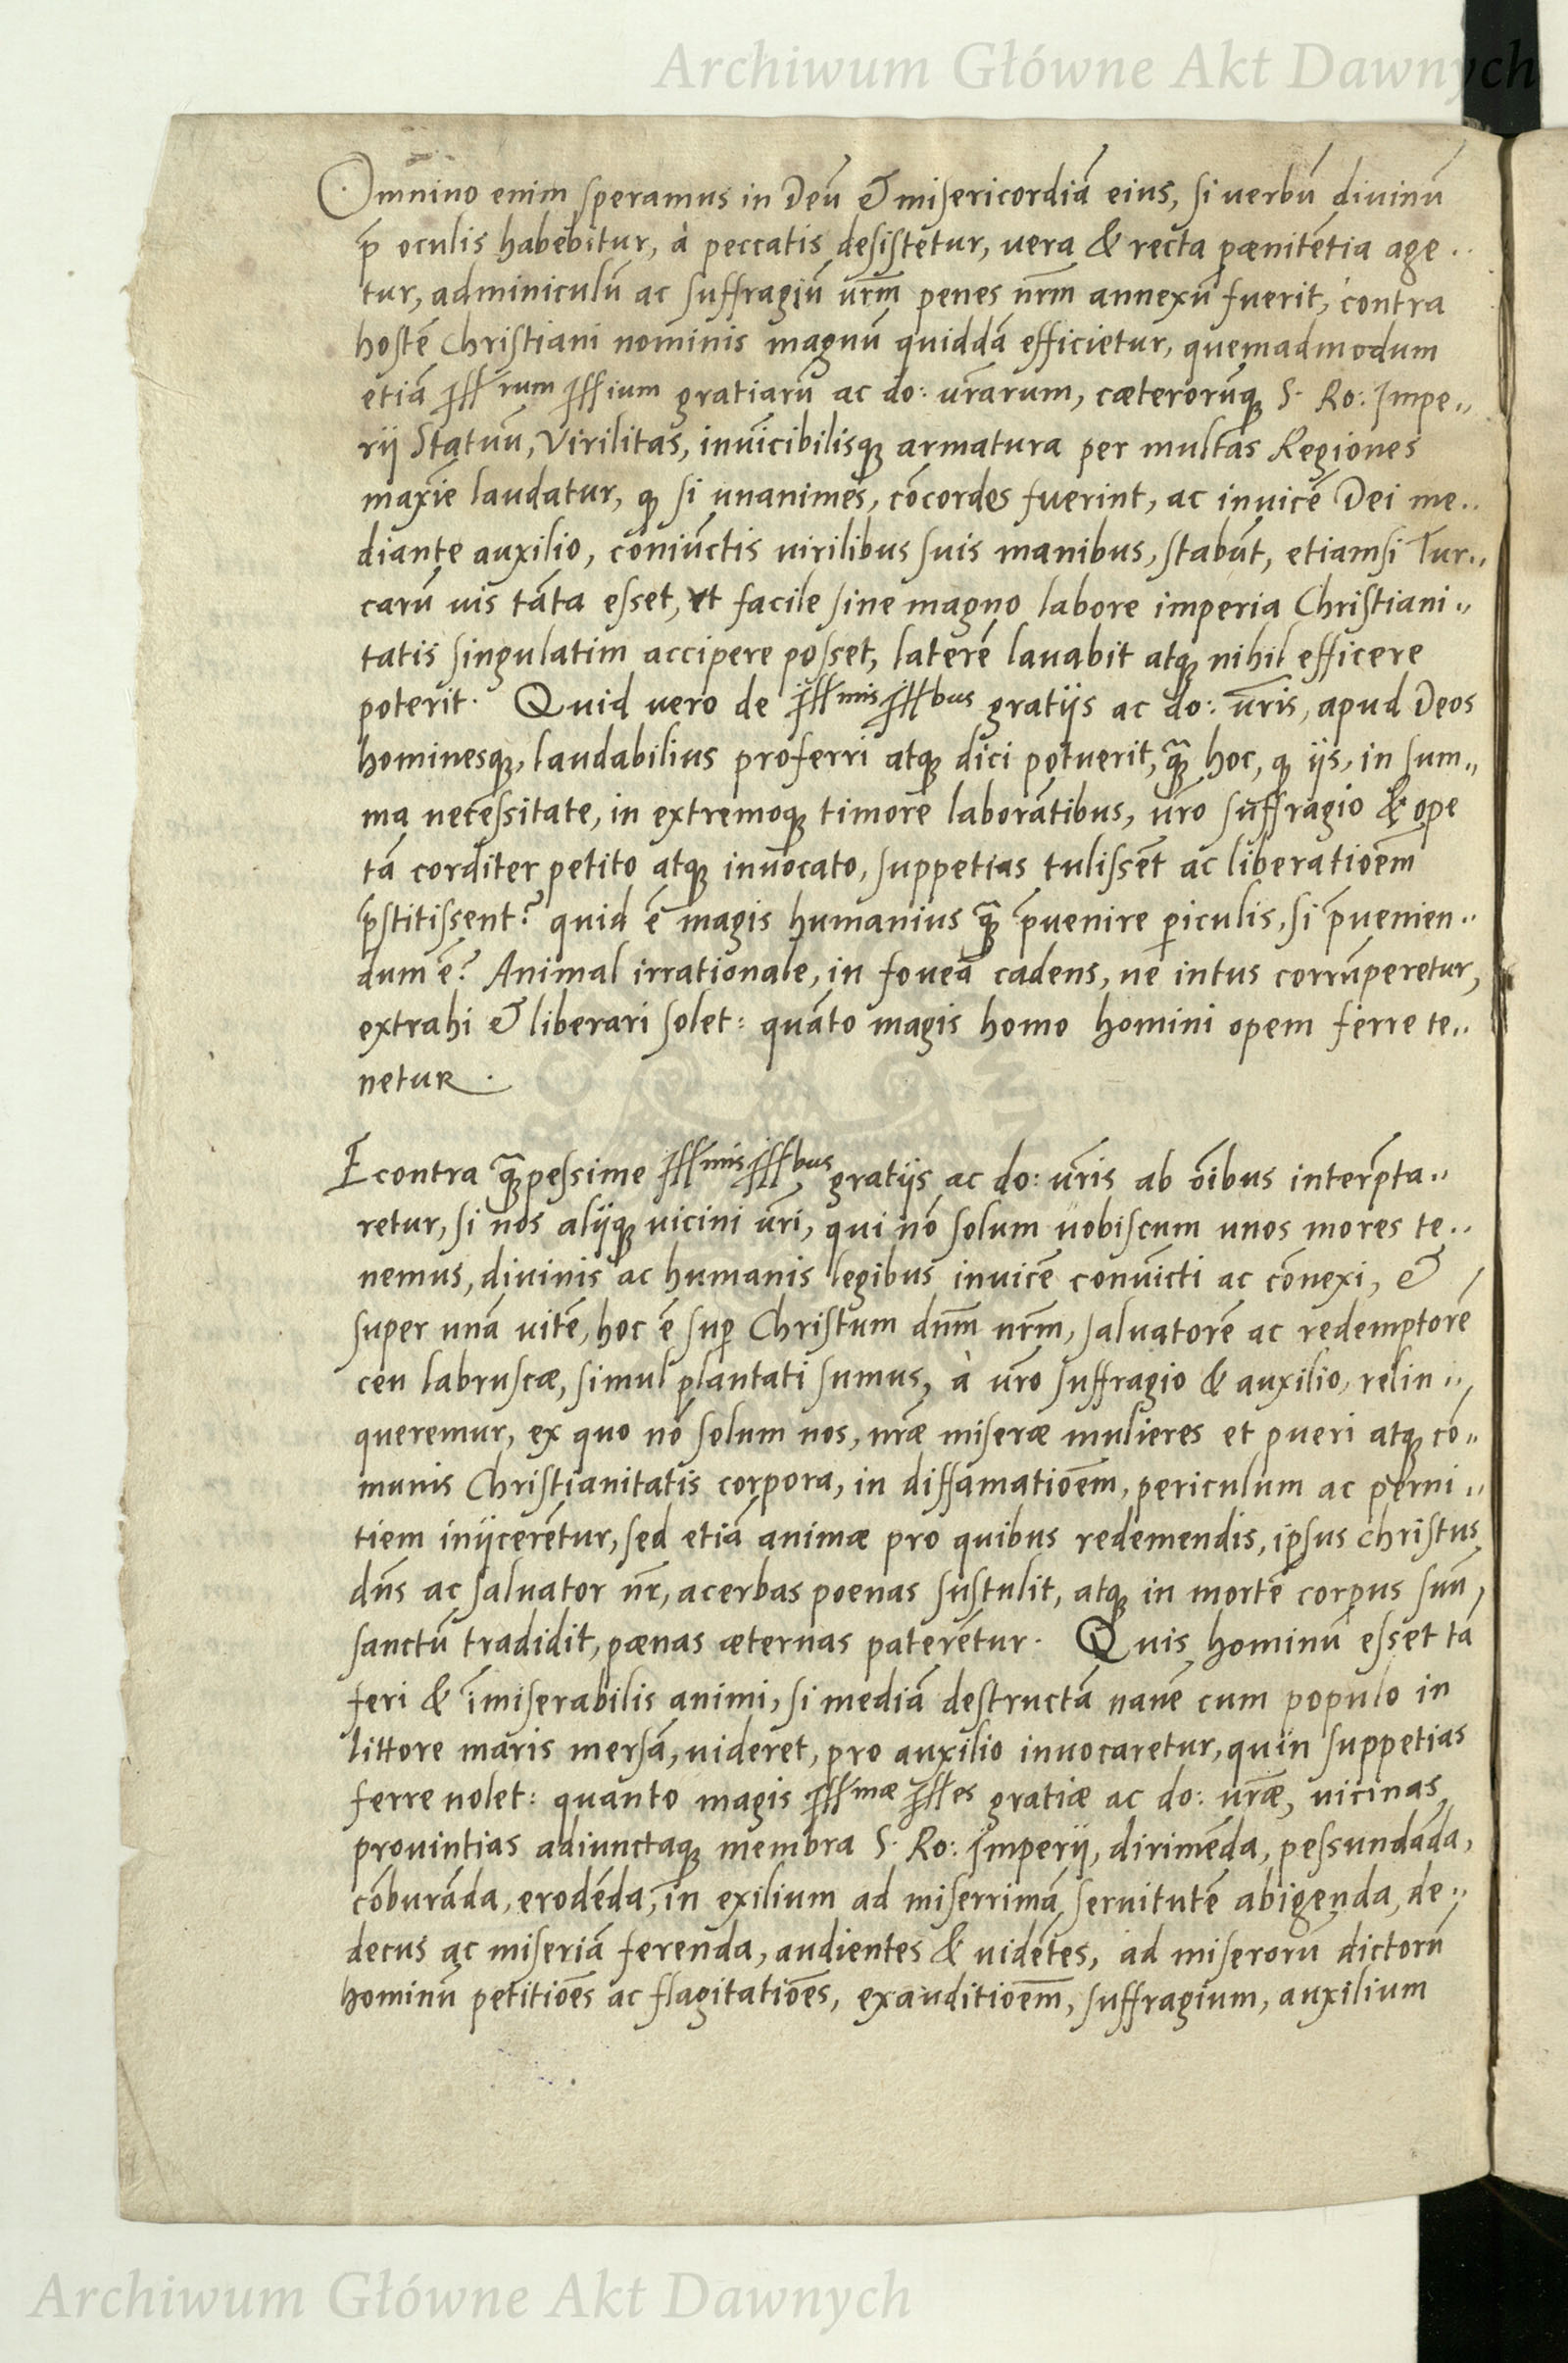 Archiwum Główne Akt Dawnych
Omnino enim speramus in Deū & misericordiā eius, si verbū divinū
p̄ oculis habebitur, à peccatis desistetur, vera & recta pænitētia age..
tur, adminiculū ac suffragiū vr̄m penes nr̄m annexū fuerit, contra
hostē Christiani nominis magnū quiddā efficietur, quemadmodum
etiā Ill rum Ill ium gratiarū ac do: vr̄arum, cæterorūq̨ S. Ro: Impe..
rij Statuū, Virilitas, invīcibilisq̨ armatura per multas Regiones
maxīe laudatur, q̨ si unanimes, cōcordes fuerint, ac invicē Dei me..
diante auxilio, coniūctis virilibus suis manibus, stabūt, etiamsi Tur..
carū vis tāta esset, vt facile sine magno labore imperia Christiani..
tatis singulatim accipere posset, laterē lavabit atq̨ nihil efficere
poterit. Quid vero de Ill mis Ill bus gratijs ac do: vr̄is, apud Deos
hominesq̨, laudabilius proferri atq̨ dici potuerit, q̄ hoc, q̨ ijs, in sum..
ma necessitate, in extremoq̨ timore laborātibus, vr̄o suffragio & ope
tā corditer petito atq̨ invocato, suppetias tulissēt ac liberatioēm
p̄stitissent? quid ē magis humanius q̄ p̄uenire periculis, si p̄uenien..
dum ē? Animal irrationale, in foveā cadens, ne intus corrūperetur,
extrahi & liberari solet: quāto magis homo homini opem ferre te..
netur.
Econtra q̄ pessime Ill mis Ill bus gratijs ac do: vr̄is ab oībus interp̄ta..
retur, si nos alijq̨ vicini vr̄i, qui nō solum vobiscum unos mores te..
nemus, divinis ac humanis legibus invicē convīcti ac cōnexi, &
super unā vitē, hoc ē sup Christum dn̄m nr̄m, salvatorē ac redemptorē
ceu labruscæ, simul plantati sumus, à vr̄o suffragio & auxilio, relin..
queremur, ex quo nō solum nos, nr̄æ miseræ mulieres et pueri atq̨ cō..
munis Christianitatis corpora, in diffamatioēm, periculum ac perni..
tiem inijcerētur, sed etiā animæ pro quibus redemendis, ipsus Christus
dn̄s ac salvator nr̄, acerbas poenas sustulit, atq̨ in mortē corpus suū,
sanctū tradidit, pænas æternas paterētur. Quis hominū esset tā
feri & īmiserabilis animi, si mediā destructā navē cum populo in
littore maris mersā, videret, pro auxilio invocaretur, quin suppetias
ferre nolet: quanto magis Ill mæ Ill es gratiæ ac do: vr̄æ, vicinas
provintias adiunctaq̨ membra S. Ro: Imperij, dirimēda, pessundāda,
cōburāda, erodēda, in exilium ad miserrimā servitutē abigenda, de..
decus ac miseriā ferenda, audientes & vidētes, ad miserorū dictorū
hominū petitiōes ac flagitatiōes, exauditioēm, suffragium, auxilium
Archiwum Główne Akt Dawnych